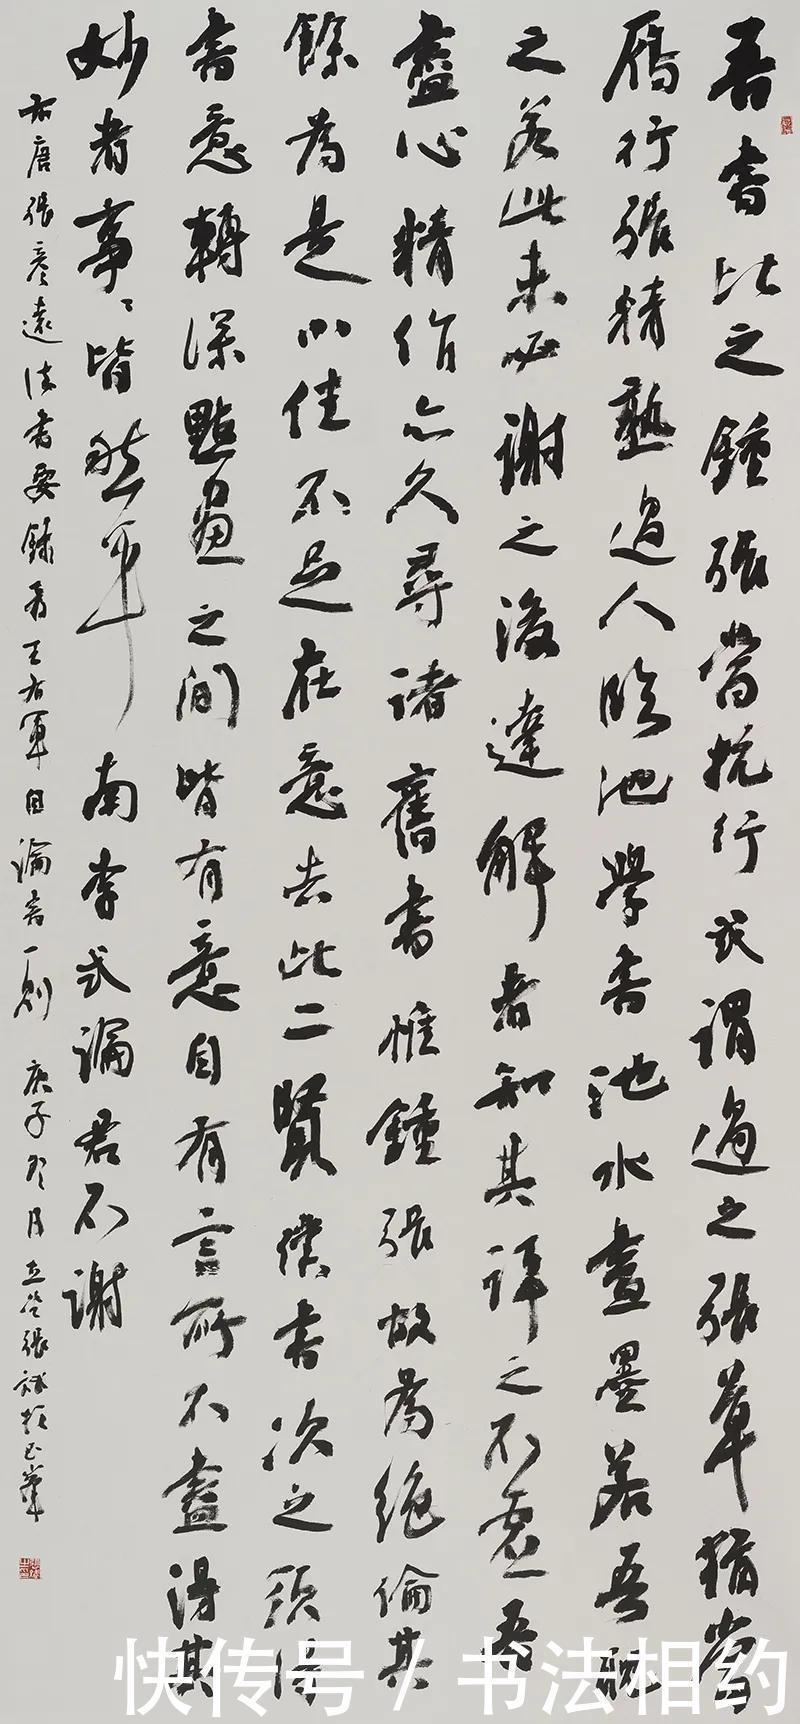 吾書比之鍾張當抗行或謂過之張草猶當
雁行張精熟過人臨池學書池水盡墨若吾耽
之若此未必謝之後達解者知其評之不虛吾
盡心精作亦久尋諸舊書惟鍾張故為絕倫其
餘為是小佳不足在意去此二賢僕書次之須得
書意轉深點畫之間皆有意自有言所不盡得其
妙者事事皆然平南李式論君不謝
右唐張彥遠法書要錄有王右軍自論書一則庚子冬月
快传号/书法相约